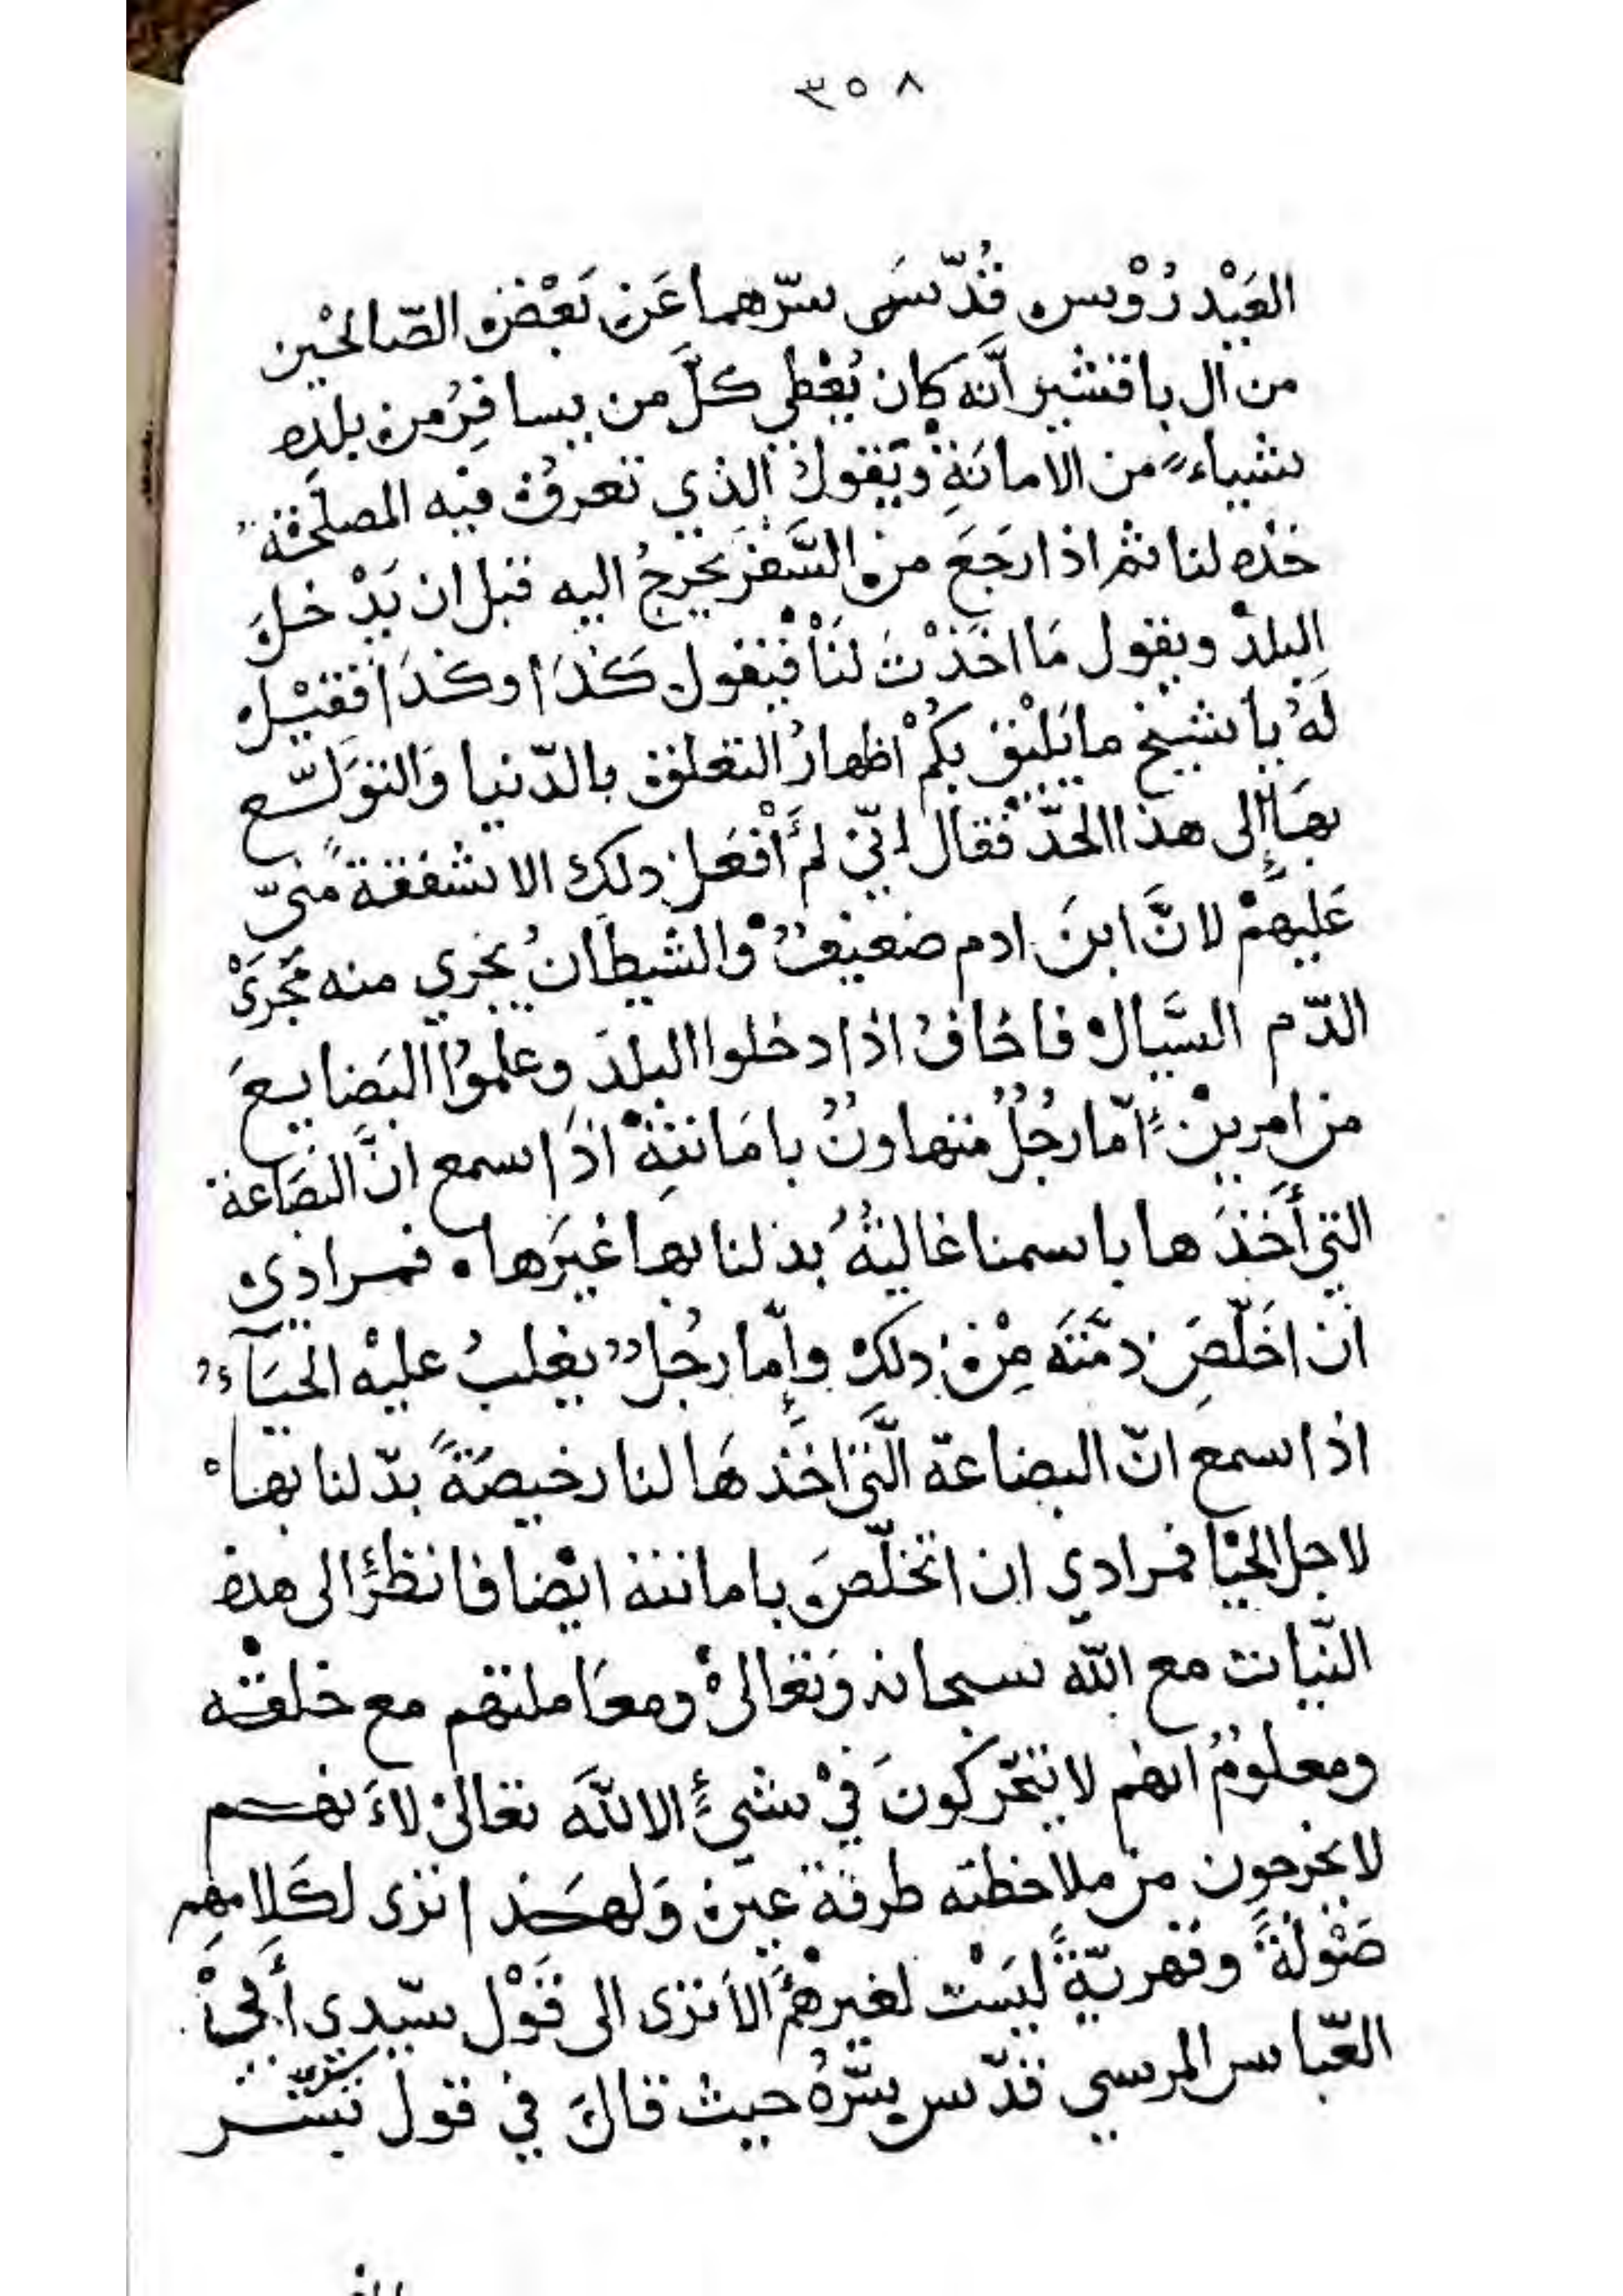 ٣٥٨
العَيْدرُوْس قُدّسَ سرّهما عَن بَعْض الصّالحْين
من ال باقشير أنّه كان يُعْطي كلَّ من يسافِرُ من بلدِه
شياءً من الامانَةِ ويَقول الذي تعرفْ فيه المصلَحة
خذه لنا ثم اذا رَجَعَ من السَّفَر يَخرجُ اليه قبل ان يَدْخلَ
البلدْ ويقول مَا اخَذْتَ لنَا فيَقول كَذَا وكَذَا فقيْل
لَهُ يا شيخ ما يَليْق بكُمْ اظهارُ التعلّق بالدّنيا وَالتوَسّع
بهَا إلى هذا الحدّ فقال انّي لم أفْعَل ذلك الا شفقة منيّ
عَليهمْ لانَّ ابنَ ادم ضعيفٌ والشيطانُ يجري منه مَجْرَىْ
الدّم السَّيال فاخافُ اذا دخلوا البلدَ وعلموُا البَضايعَ
من امرين اِمّا رجُلٌ متهاونٌ بامَانتِهْ اذَا سمع انَّ البضَاعة
التي أخَذَها باسمنا غاليةٌ بذلنا بها غيَرها فمرادي
ان اخَلّصَ ذمّتَه مِنْ ذلك وإمّا رجُلٌ يغلبُ عليْه الحيَآءُ
اذا سمع انّ البضاعة الّتي اخَذهَا لنا رخيصَةً بدّلنا بها
لاجل الحيْا فمرادي ان اتخلّصَ بامانته ايْضا فانظرْ الى هذه
النّيات مع الله سبحانه وَتعَالىْ ومعَاملتهم مع خلقه
ومعلومٌ انهم لا يتحّركونَ فيْ شيءٍ الا للّهَ تعَالىْ لاَنهم
لا يخرجون من ملاحظته طرفة عين وَلهَذا نرى لكَلامِهم
صَوْلةً وقهريّةً ليَسْت لغيرهمْ الاَ نرى الى قَوْل سيّدي أبيْ
العّباس المرسي قدّس سّرهُ حيث قالَ في قول بشر